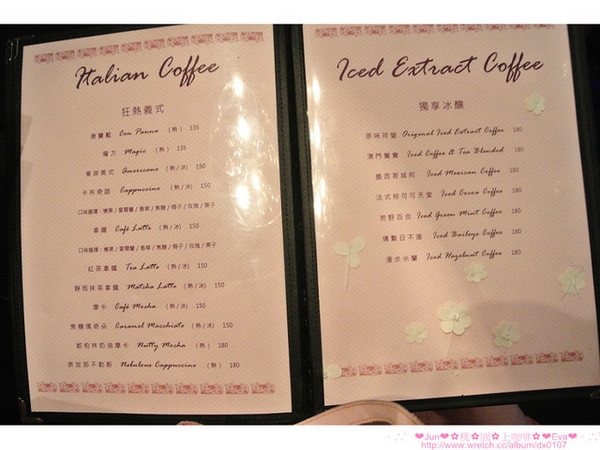 Italian Coffee
狂熱義式
康寶藍 Con Panna (熱) 135
魔力 Magic (熱) 135
東岸美式 Americano (熱/冰) 150
卡布奇諾 Cappuccino (熱/冰) 150
口味選擇:榛果/愛爾蘭/香草/焦糖/椰子/玫瑰/栗子
拿鐵 Café Latte (熱/冰) 150
口味選擇:榛果/愛爾蘭/香草/焦糖/椰子/玫瑰/栗子
紅茶拿鐵 Tea Latte (熱/冰) 150
靜岡抹茶拿鐵 Matcha Latte (熱/冰) 150
摩卡 Café Mocha (熱/冰) 150
焦糖瑪奇朵 Caramel Macchiato (熱/冰) 150
都柏林奶油摩卡 Nutty Mocha (熱) 180
奔放那不勒斯 Nebulous Cappuccino (熱) 180
Iced Extract Coffee
獨享冰釀
原味荷蘭 Original Iced Extract Coffee 180
澳門鴛鴦 Iced Coffee & Tea Blended 180
墨西哥城邦 Iced Mexican Coffee 180
法式椰可可天堂 Iced Cocoa Coffee 180
荒野百合 Iced Green Mint Coffee 180
情繫日不落 Iced Baileys Coffee 180
漫步米蘭 Iced Hazelnut Coffee 180
❤Jun❤✿桃✿園✿上咖啡✿❤Eva❤
http://www.wretch.cc/album/dx0107